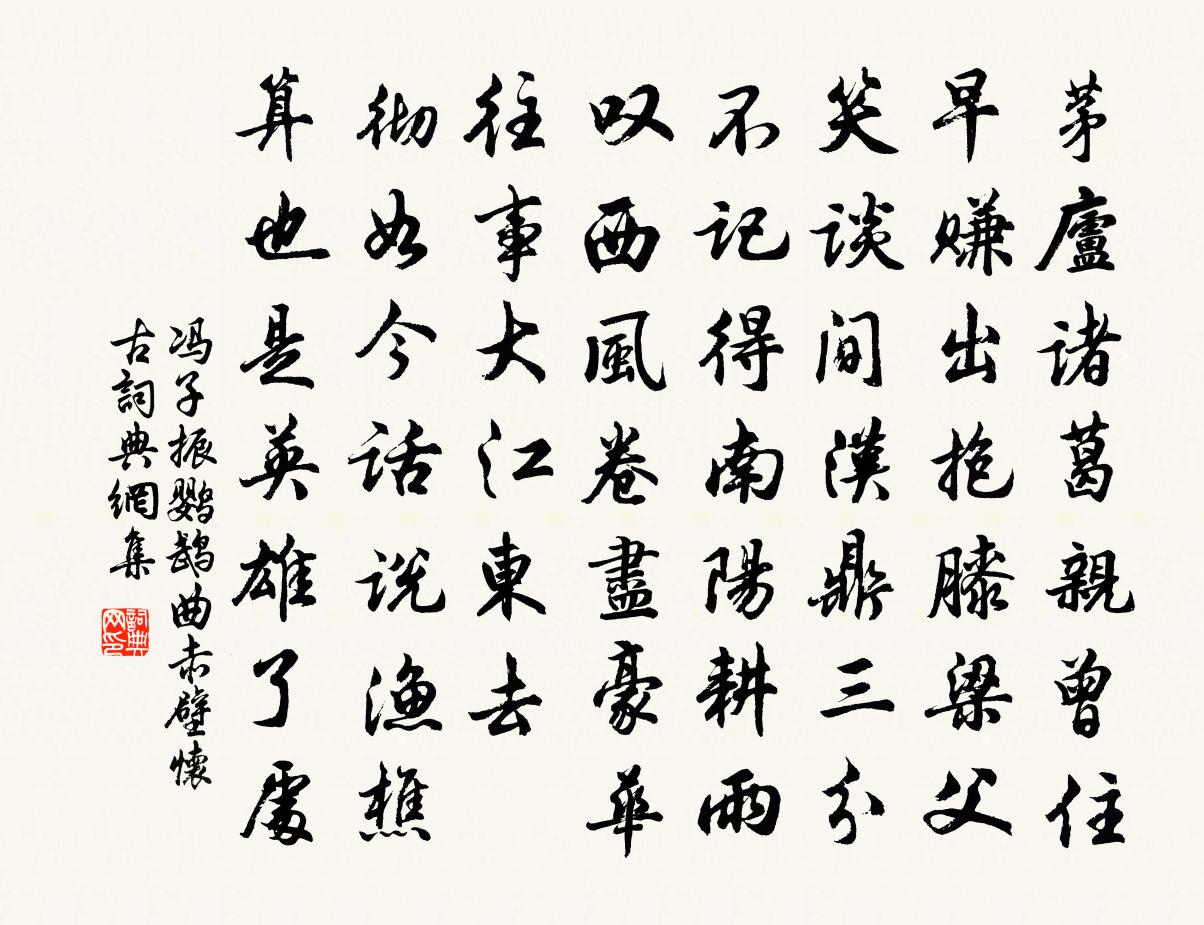 茅廬諸葛親曾住
早赚出抱膝梁父
笑谈間漢鼎三分
不记得南陽耕雨
叹西風卷盡豪華
往事大江東去
彻如今话说渔樵
算也是英雄了處
冯子振鹦鹉曲赤壁懷
古詞典網集
詞典
网印